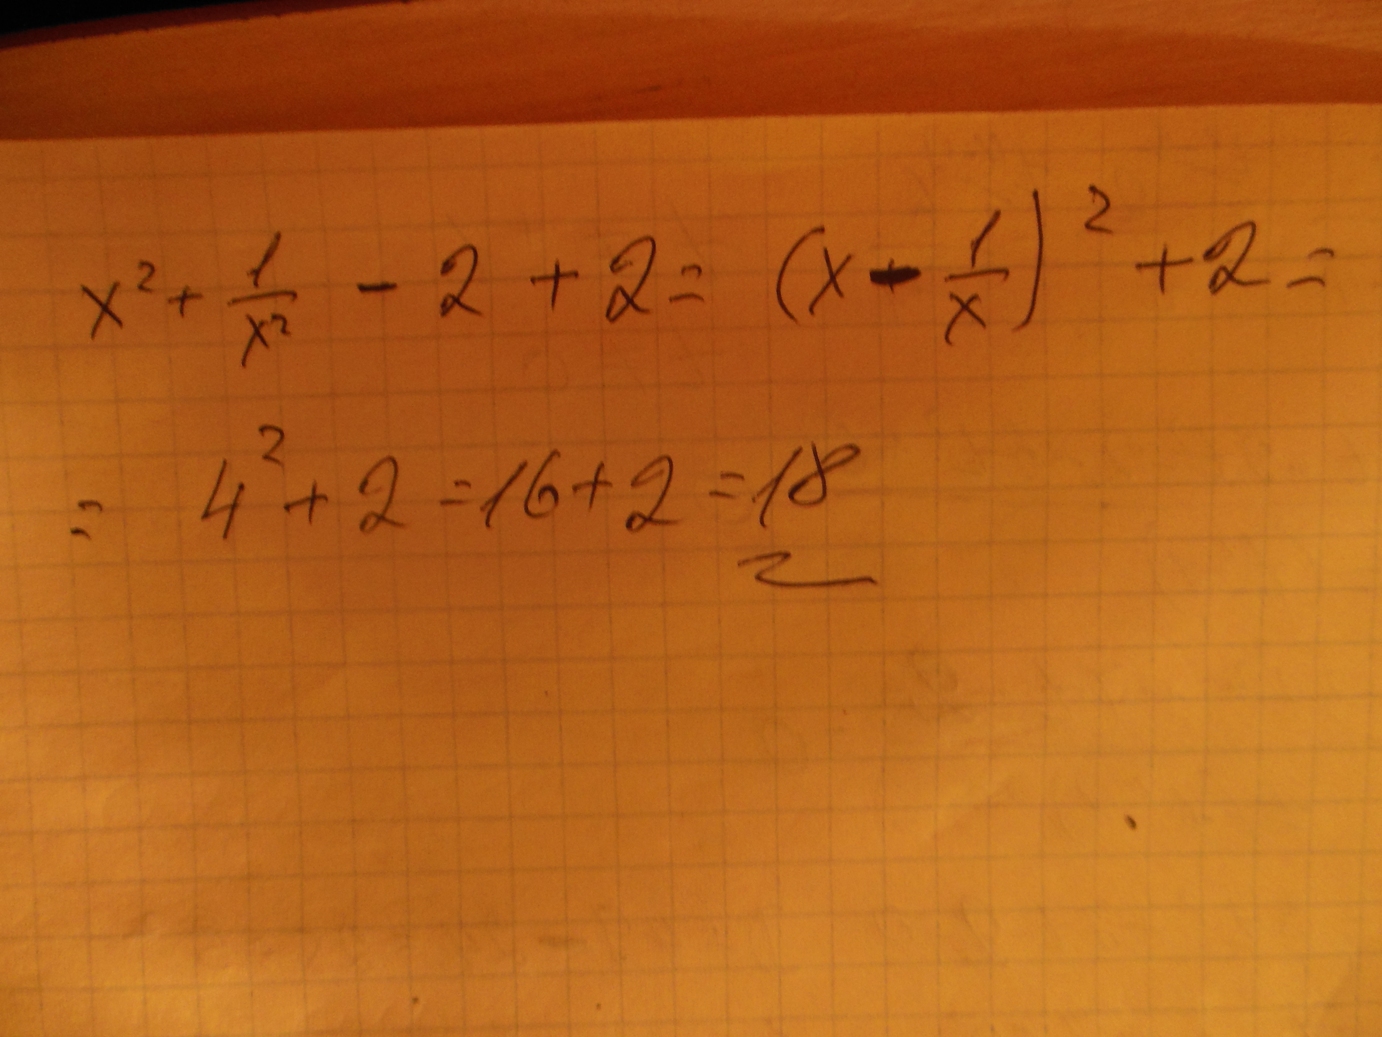 x² + 1/x² - 2 + 2 = (x - 1/x)² + 2 =
= 4² + 2 = 16 + 2 = 18